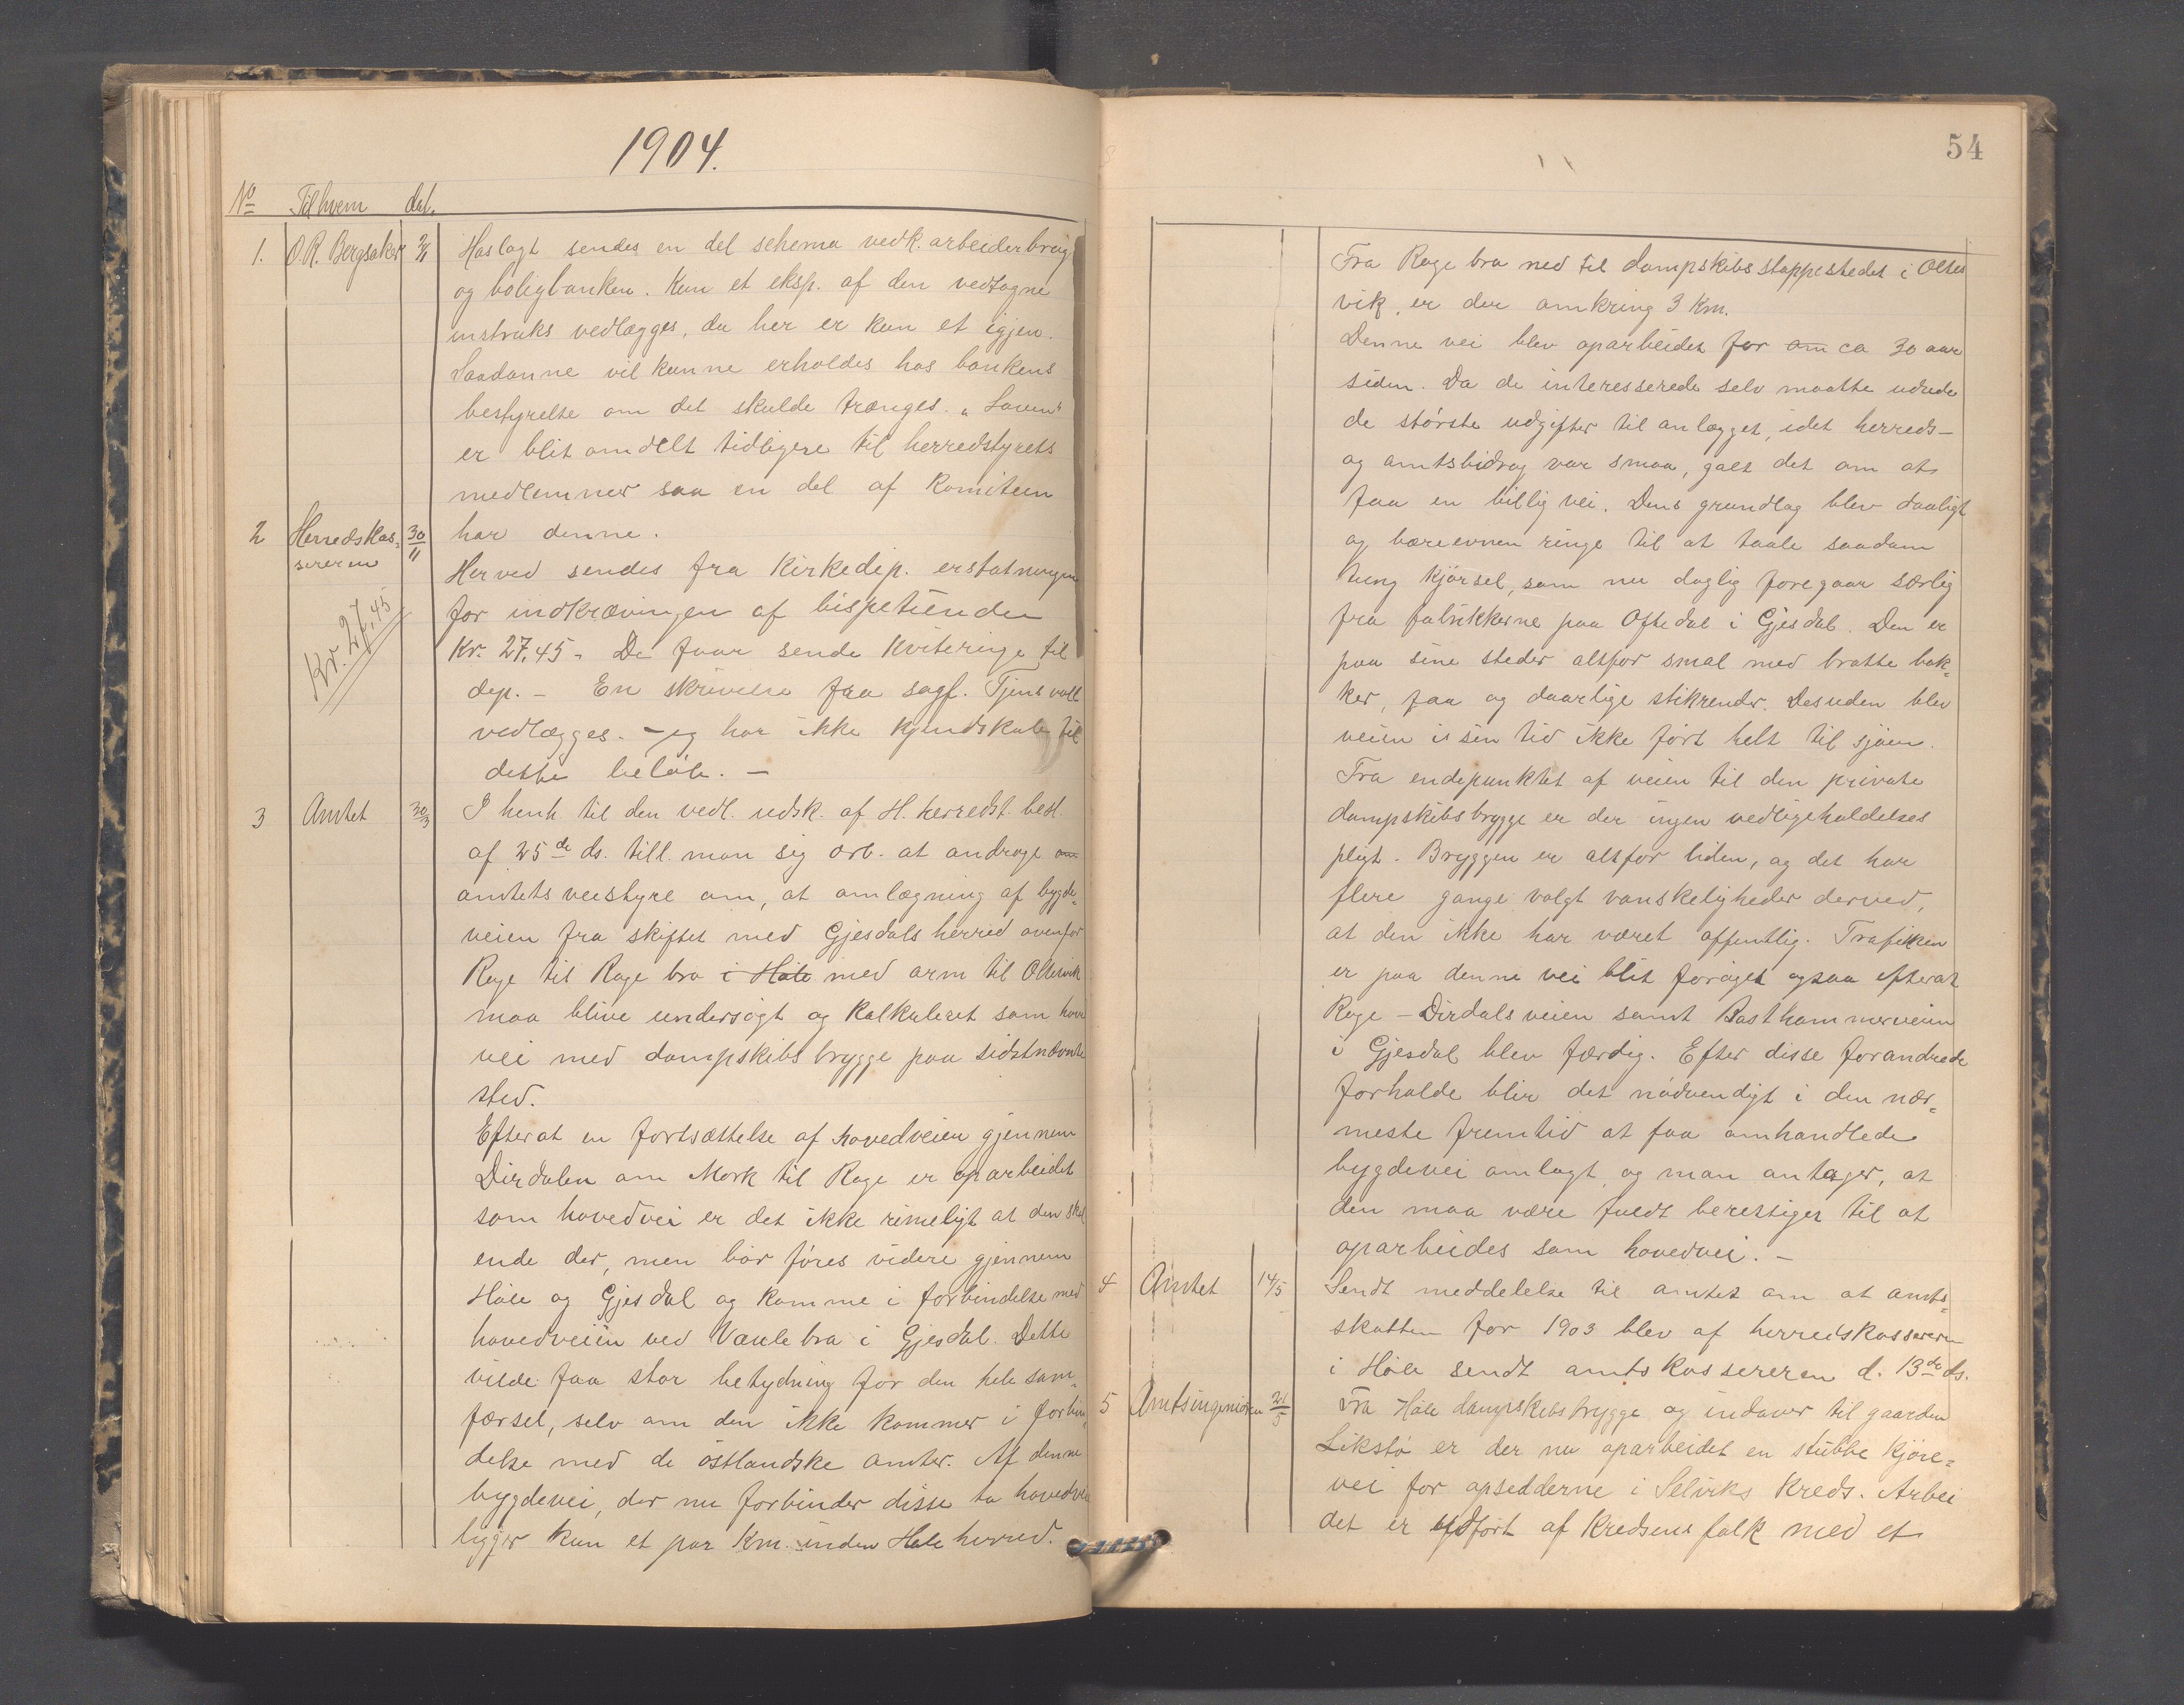 1904.
No Til hvem dat.
1. O. R. Bergsaker Hoslagt sendes en del schema vedk. arbeiderbrug
og boligbanken. Kun et eksp. af den vedtagne
instruks vedlægges, da her er kun et igjen.
Saadanne vil kunne erholdes hos bankens
bestyrelse om det skulde trænges. „Loven"
er blit omdelt tidligere til herredstyrets
medlemmer saa en del af Komiteen
har denne.
2 Herredskas-
sereren 30/11
Kr. 27,45
Herved sendes fra Kirkedep. erstatningen
for indkrævingen af bispetienden
Kr. 27,45. De faar sende Kvitering til
dep. – En skrivelse fra sagf. Tjensvoll
vedlægges. – jeg har ikke kjendskab til
dette beløb. –
3 Amtet 30/3 I henh. til den vedl. udsk. af H. herredst. besl.
af 25de ds. till. man sig ærb. at andrage om
amtets veistyre om, at omlægning af bygde-
veien fra skiftet med Gjesdals herred ovenfor
Rage til Rage bro i Høle med arm til Oltesvik
maa blive undersøgt og kalkuleret som hoved
vei med dampskibsbrygge paa sidstnævnte
sted.
Efterat en fortsættelse af hovedveien gjennem
Dirdalen om Mork til Rage er oparbeidet
som hovedvei er det ikke rimeligt at den skal
ende der, men bør føres videre gjennem
Høle og Gjesdal og komme i forbindelse med
hovedveien ved Vaule bro i Gjesdal. Dette
vilde faa stor betydning for den hele sam-
færsel, selv om den ikke kommer i forbin-
delse med de østlandske amter. Af denne
bygdevei, der nu forbinder disse to hovedveie
ligger kun et par Km. inden Høle herred.
54
Fra Rage bro ned til dampskibsstoppestedet i Oltes
vik, er der omkring 3 Km.
Denne vei blev oparbeidet for om ca 30 aar
siden. Da de interesserede selv maatte udrede
de største udgifter til anlægget, idet herreds-
og amtsbidrag var smaa, galt det om at
faa en billig vei. Dens grundlag blev daarligt
og bæreevnen ringe til at taale saadan
tung kjørsel, som nu daglig foregaar særlig
fra fabrikkerne paa Oftedal i Gjesdal. Den er
paa sine steder altfor smal med bratte bak-
ker, faa og daarlige stikrender. Desuden blev
veien i sin tid ikke ført helt til sjøen.
Fra endepunktet af veien til den private
dampskibsbrygge er der ingen vedligeholdelses
pligt. Bryggen er altfor liden, og det har
flere gange valgt vanskeligheder derved,
at den ikke har været offentlig. Trafikken
er paa denne vei blit forøget ogsaa efterat
Rage – Dirdalsveien samt Basthammerveien
i Gjesdal blev færdig. Efter disse forandrede
forholde blir det nødvendigt i den nær-
meste fremtid at faa omhandlede
bygdevei omlagt og man antager, at
den maa være fuldt berettiget til at
oparbeides som hovedvei. –
4 Amtet 14/5 Sendt meddelelse til amtet om at amts-
skatten for 1903 blev af herredskassereren
i Høle sendt amtskassereren d. 13de ds.
5 Amtsingeniøren 21/5 Fra Høle dampskibsbrygge og indover til gaarden
Likstø er der nu oparbeidet en stubbe kjøre-
vei for opsedderne i Selviks Kreds. Arbei
det er udført af Kredsens folk med et